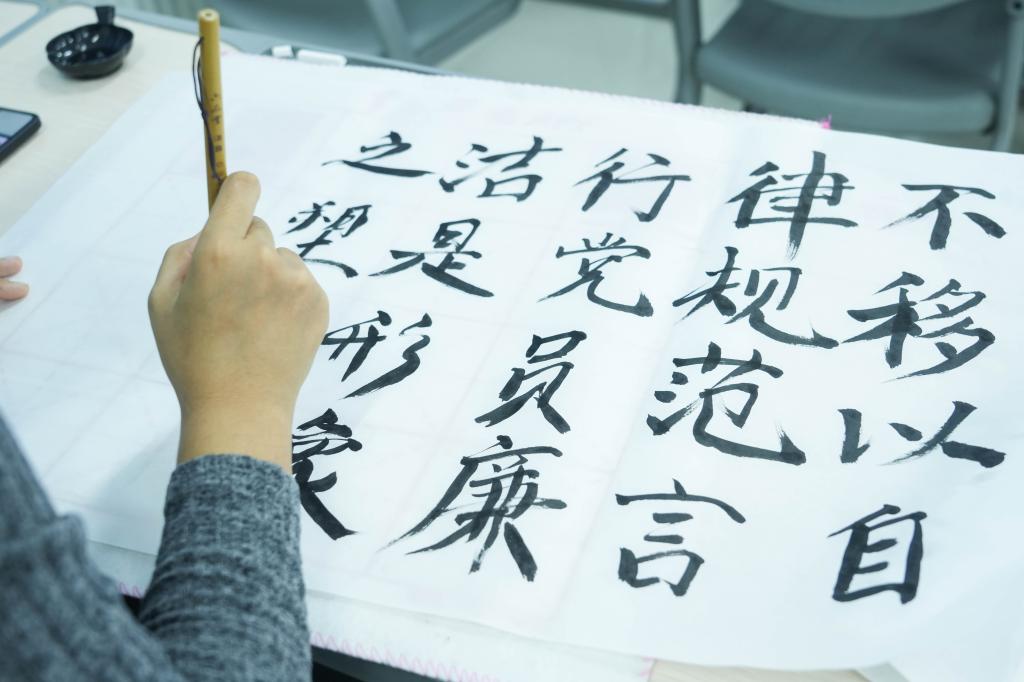 不移以自
律规范言
行党员廉
洁是形象
之塑